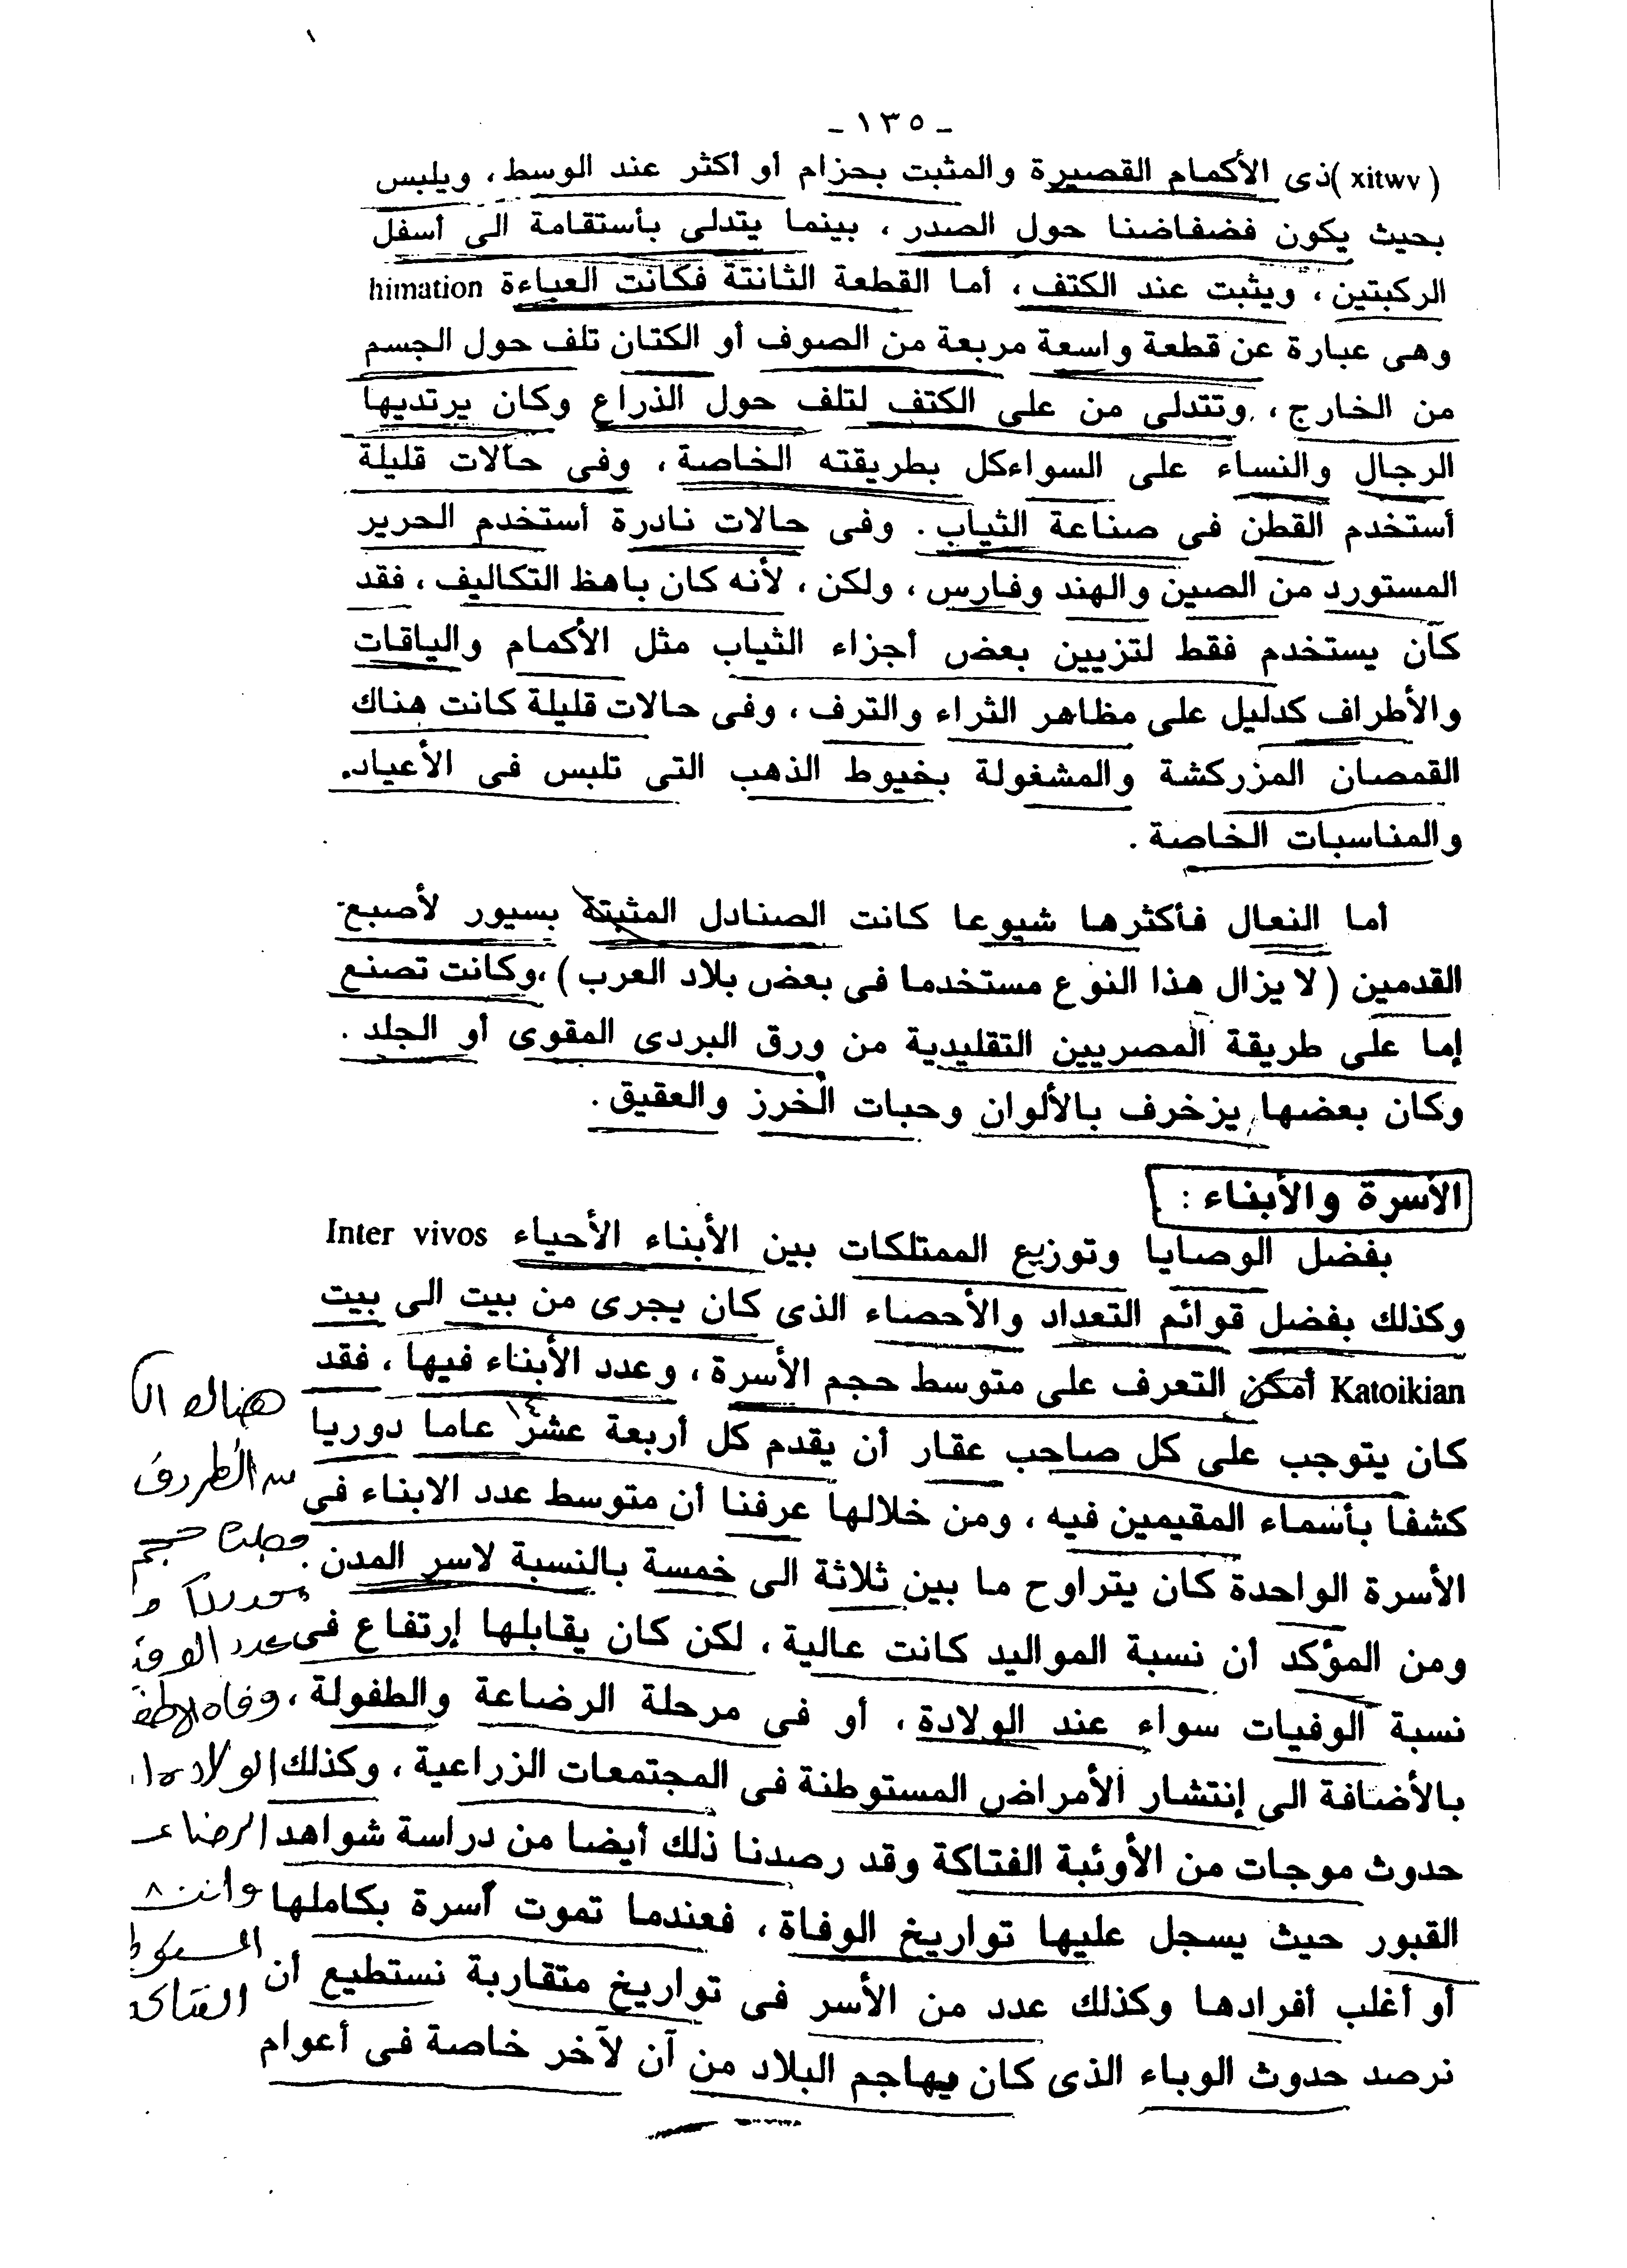 - ١٣٥ -
(xitwv) ذى الأكمام القصيرة والمثبت بحزام أو أكثر عند الوسط، ويلبس
بحيث يكون فضفاضنا حول الصدر، بينما يتدلى بأستقامة الى أسفل
الركبتين، ويثبت عند الكتف، أما القطعة الثانتة فكانت العباءة himation
وهى عبارة عن قطعة واسعة مربعة من الصوف أو الكتان تلف حول الجسم
من الخارج، وتتدلى من على الكتف لتلف حول الذراع وكان يرتديها
الرجال والنساء على السواءكل بطريقته الخاصة، وفى حالات قليلة
أستخدم القطن فى صناعة الثياب. وفى حالات نادرة أستخدم الحرير
المستورد من الصين والهند وفارس، ولكن، لأنه كان باهظ التكاليف، فقد
كان يستخدم فقط لتزيين بعض أجزاء الثياب مثل الأكمام والياقات
والأطراف كدليل على مظاهر الثراء والترف، وفى حالات قليلة كانت هناك
القمصان المزركشة والمشغولة بخيوط الذهب التى تلبس فى الأعياد.
والمناسبات الخاصة.
أما النعال فأكثرها شيوعا كانت الصنادل المثبتة بسيور لأصبع
القدمين (لا يزال هذا النوع مستخدما فى بعض بلاد العرب)، وكانت تصنع
إما على طريقة المصريين التقليدية من ورق البردى المقوى أو الجلد.
وكان بعضها يزخرف بالألوان وحبات الخرز والعقيق.
الأسرة والأبناء:
بفضل الوصايا وتوزيع الممتلكات بين الأبناء الأحياء Inter vivos
وكذلك بفضل قوائم التعداد والأحصاء الذى كان يجرى من بيت الى بيت
Katoikian أمكن التعرف على متوسط حجم الأسرة، وعدد الأبناء فيها، فقد
كان يتوجب على كل صاحب عقار أن يقدم كل أربعة عشر عاما دوريا
١٤
كشفا بأسماء المقيمين فيه، ومن خلالها عرفنا أن متوسط عدد الابناء فى
الأسرة الواحدة كان يتراوح ما بين ثلاثة الى خمسة بالنسبة لاسر المدن.
ومن المؤكد أن نسبة المواليد كانت عالية، لكن كان يقابلها إرتفاع فى
نسبة الوفيات سواء عند الولادة، أو فى مرحلة الرضاعة والطفولة،
بالأضافة الى إنتشار الأمراض المستوطنة فى المجتمعات الزراعية، وكذلك
حدوث موجات من الأوئبة الفتاكة وقد رصدنا ذلك أيضا من دراسة شواهد
القبور حيث يسجل عليها تواريخ الوفاة، فعندما تموت أسرة بكاملها
أو أغلب أفرادها وكذلك عدد من الأسر فى تواريخ متقاربة نستطيع أن
نرصد حدوث الوباء الذى كان يهاجم البلاد من آن لآخر خاصة فى أعوام
هناك
الظروف
حجم
عدد
وفاه
الولاده
الرضاعه
الفتاكه